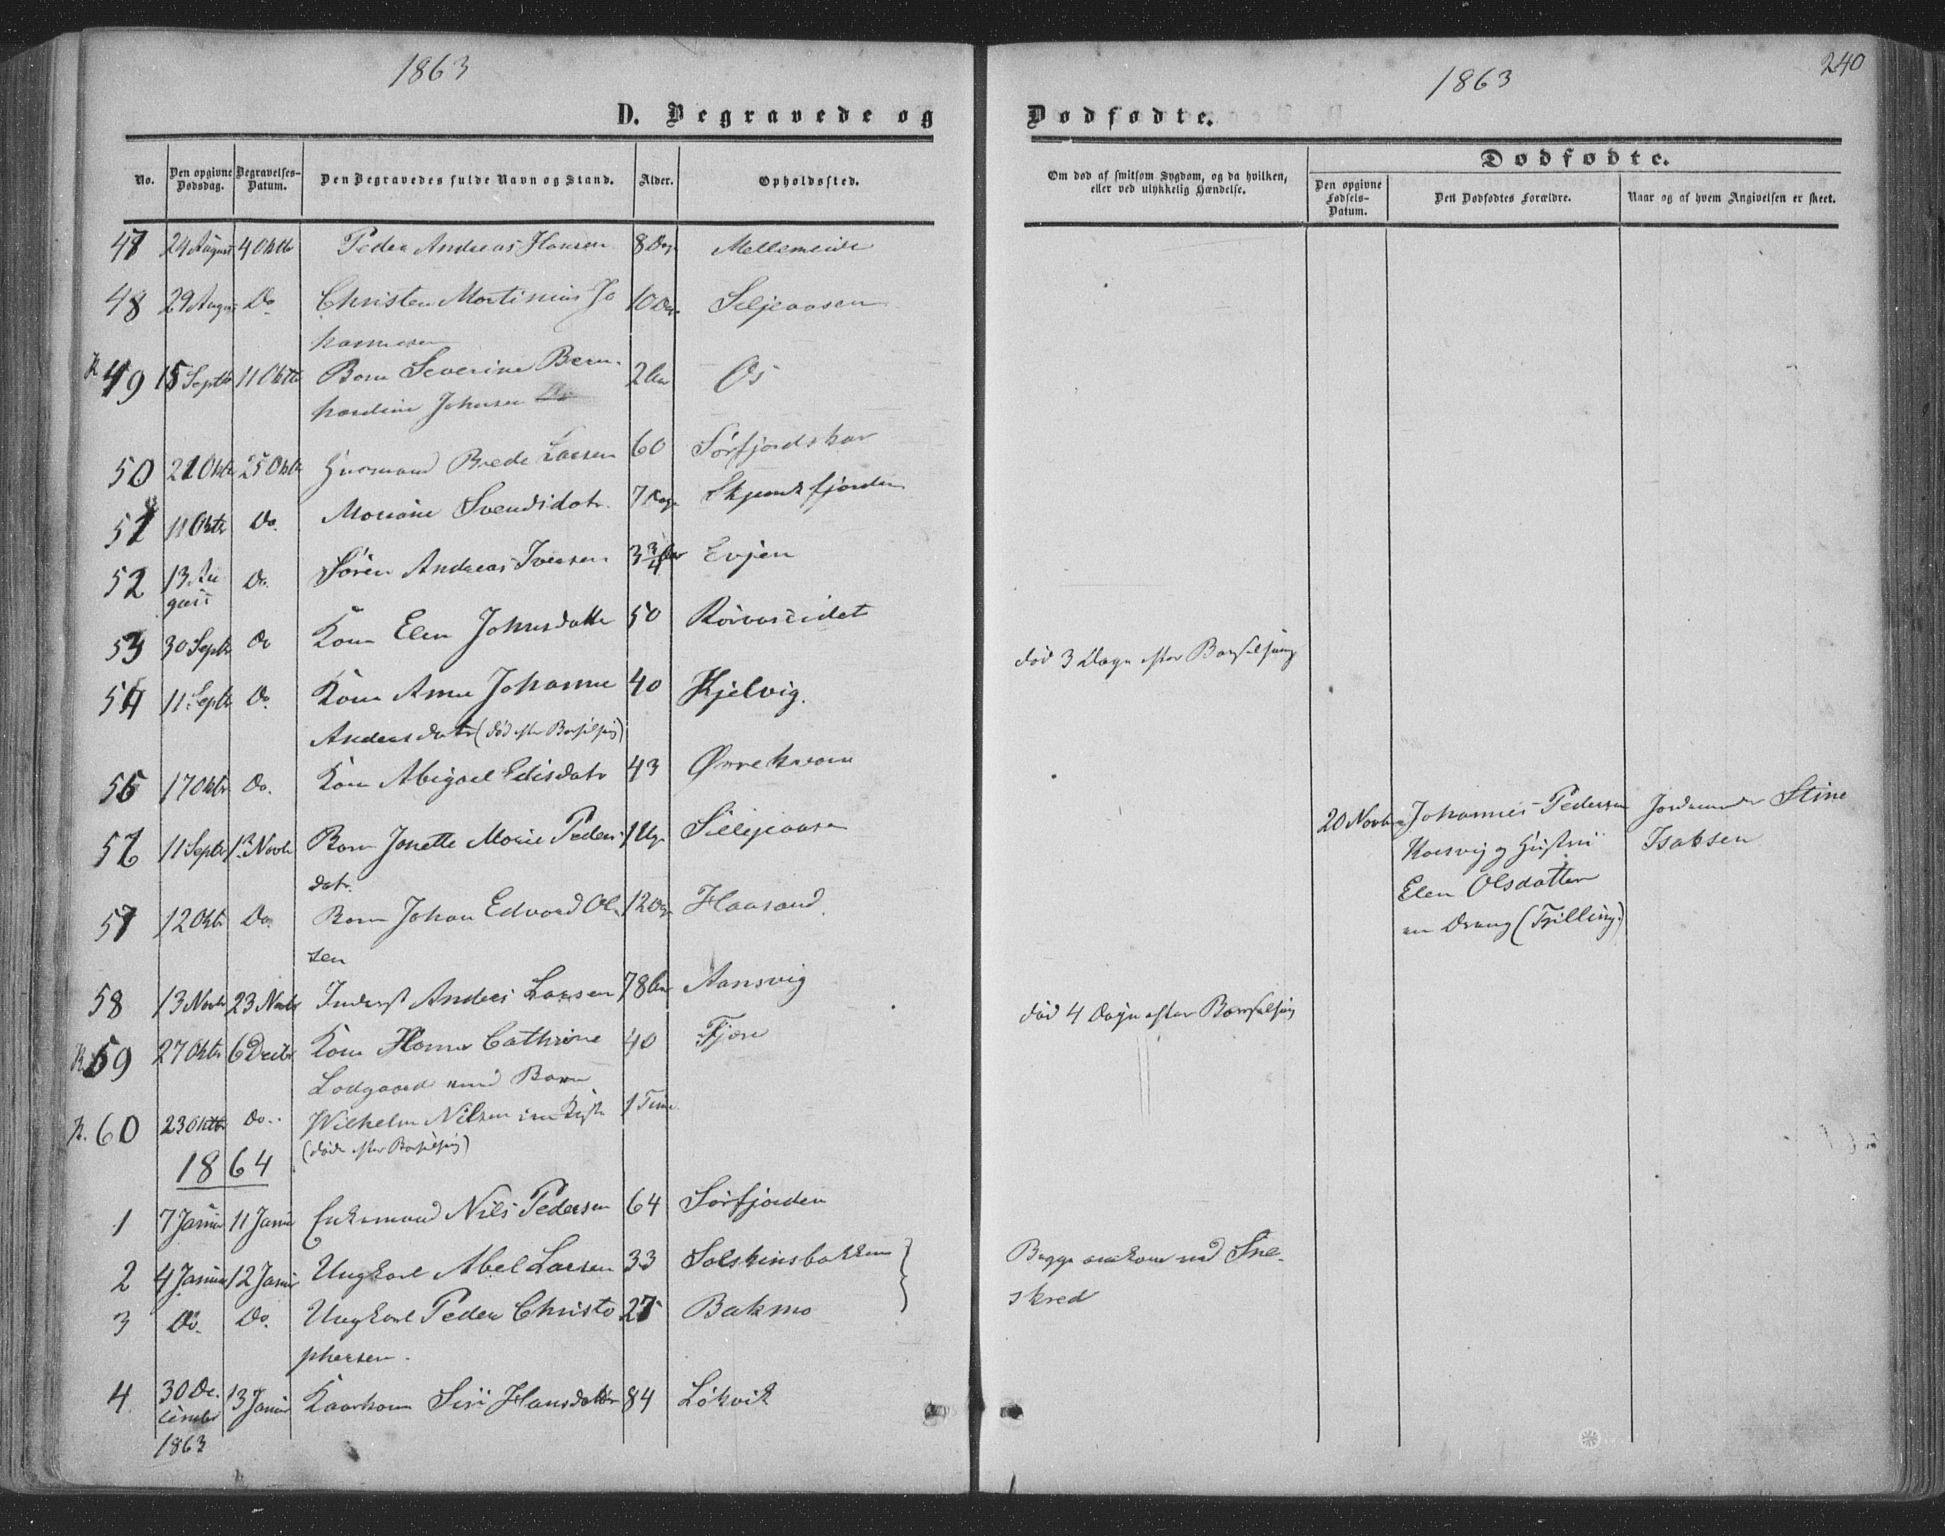 1863
D. Begravede og
No.
Den opgivne Dødsdag.
Begravelses-Datum.
Den Begravedes fulde Navn og Stand.
Alder.
Opholdssted.
47 24 August 4 Oktb Peder Andreas Hansen 8 Dag Mellemeide
48 29 August Do Christen Martinius Jo 10 Dag Seljeaasen
hannesen
49 15 Septb 11 Oktb Barn Severine Bern- 2 Aar Os
hardine Johnsen
50 21 Oktb 25 Oktb Husmand Brede Larsen 60 Sørfjordskar
51 11 Oktbr Do. Mariane Svendsdatr. 7 Skjendsfjorden
52 13 Au Do. Søren Andreas Iversen 3 3/4 Aar Evjen
gust
53 30 Septb Do Kone Elen Johnsdatter 50 Rørvaseidet
54 11 Septb Do. Kone Anne Johanne 40 Kjelvig.
Andersdatr (død efter Barselseng)
55 17 Oktbr Do. Kone Abigael Edisdatr 43
56 11 Septbr 13 Novbr Barn Jonette Marie Peders 1 Ug. Silljeaasen
datr.
57 12 Oktbr Do. Barn Johan Edvard Ol 12 Dag Haasand
sen
58 13 Novbr 23 Novbr Inderst Anders Larsen 78 Aar Aansvig
59 27 Oktbr 6 Decbr Kone Hanna Cathrine 40 Fjære
Lodgaard med Barn
R. 60 23 Oktbr Do. Wilhelm Nilsen i en Kiste 1 Time
(døde efter Barselseng)
1864
1 7 Januar 11 Januar Enkemand Nils Pedersen 64 Sørfjorden
2 4 Januar 12 Januar Ungkarl Abel Larsen 33 Solskinsbakken
3 Do. Do. Ungkarl Peder Christo 27 Bakmo
phersen.
4 30 De- 13 Januar Kaarkone Siri Hansdatter 84 Løkvik
cember
1863
1863
240
Dødfødte.
Om død af smitsom Sygdom, og da hvilken,
eller ved ulykkelig Hændelse.
Dødfødte.
Den opgivne Fødsels-Datum.
Den Dødfødtes Forældre.
Naar og af hvem Angivelsen er skeet.
død 3 Dage efter Barselseng
20 Novbr Johannes Pedersen Jordemoder Stine
Korsvig og Hustru Isaksen
Elen Olsdatter
en Dreng (Tvilling.)
død 4 Dage efter Barselseng
Begge omkom ved Sne-
skred